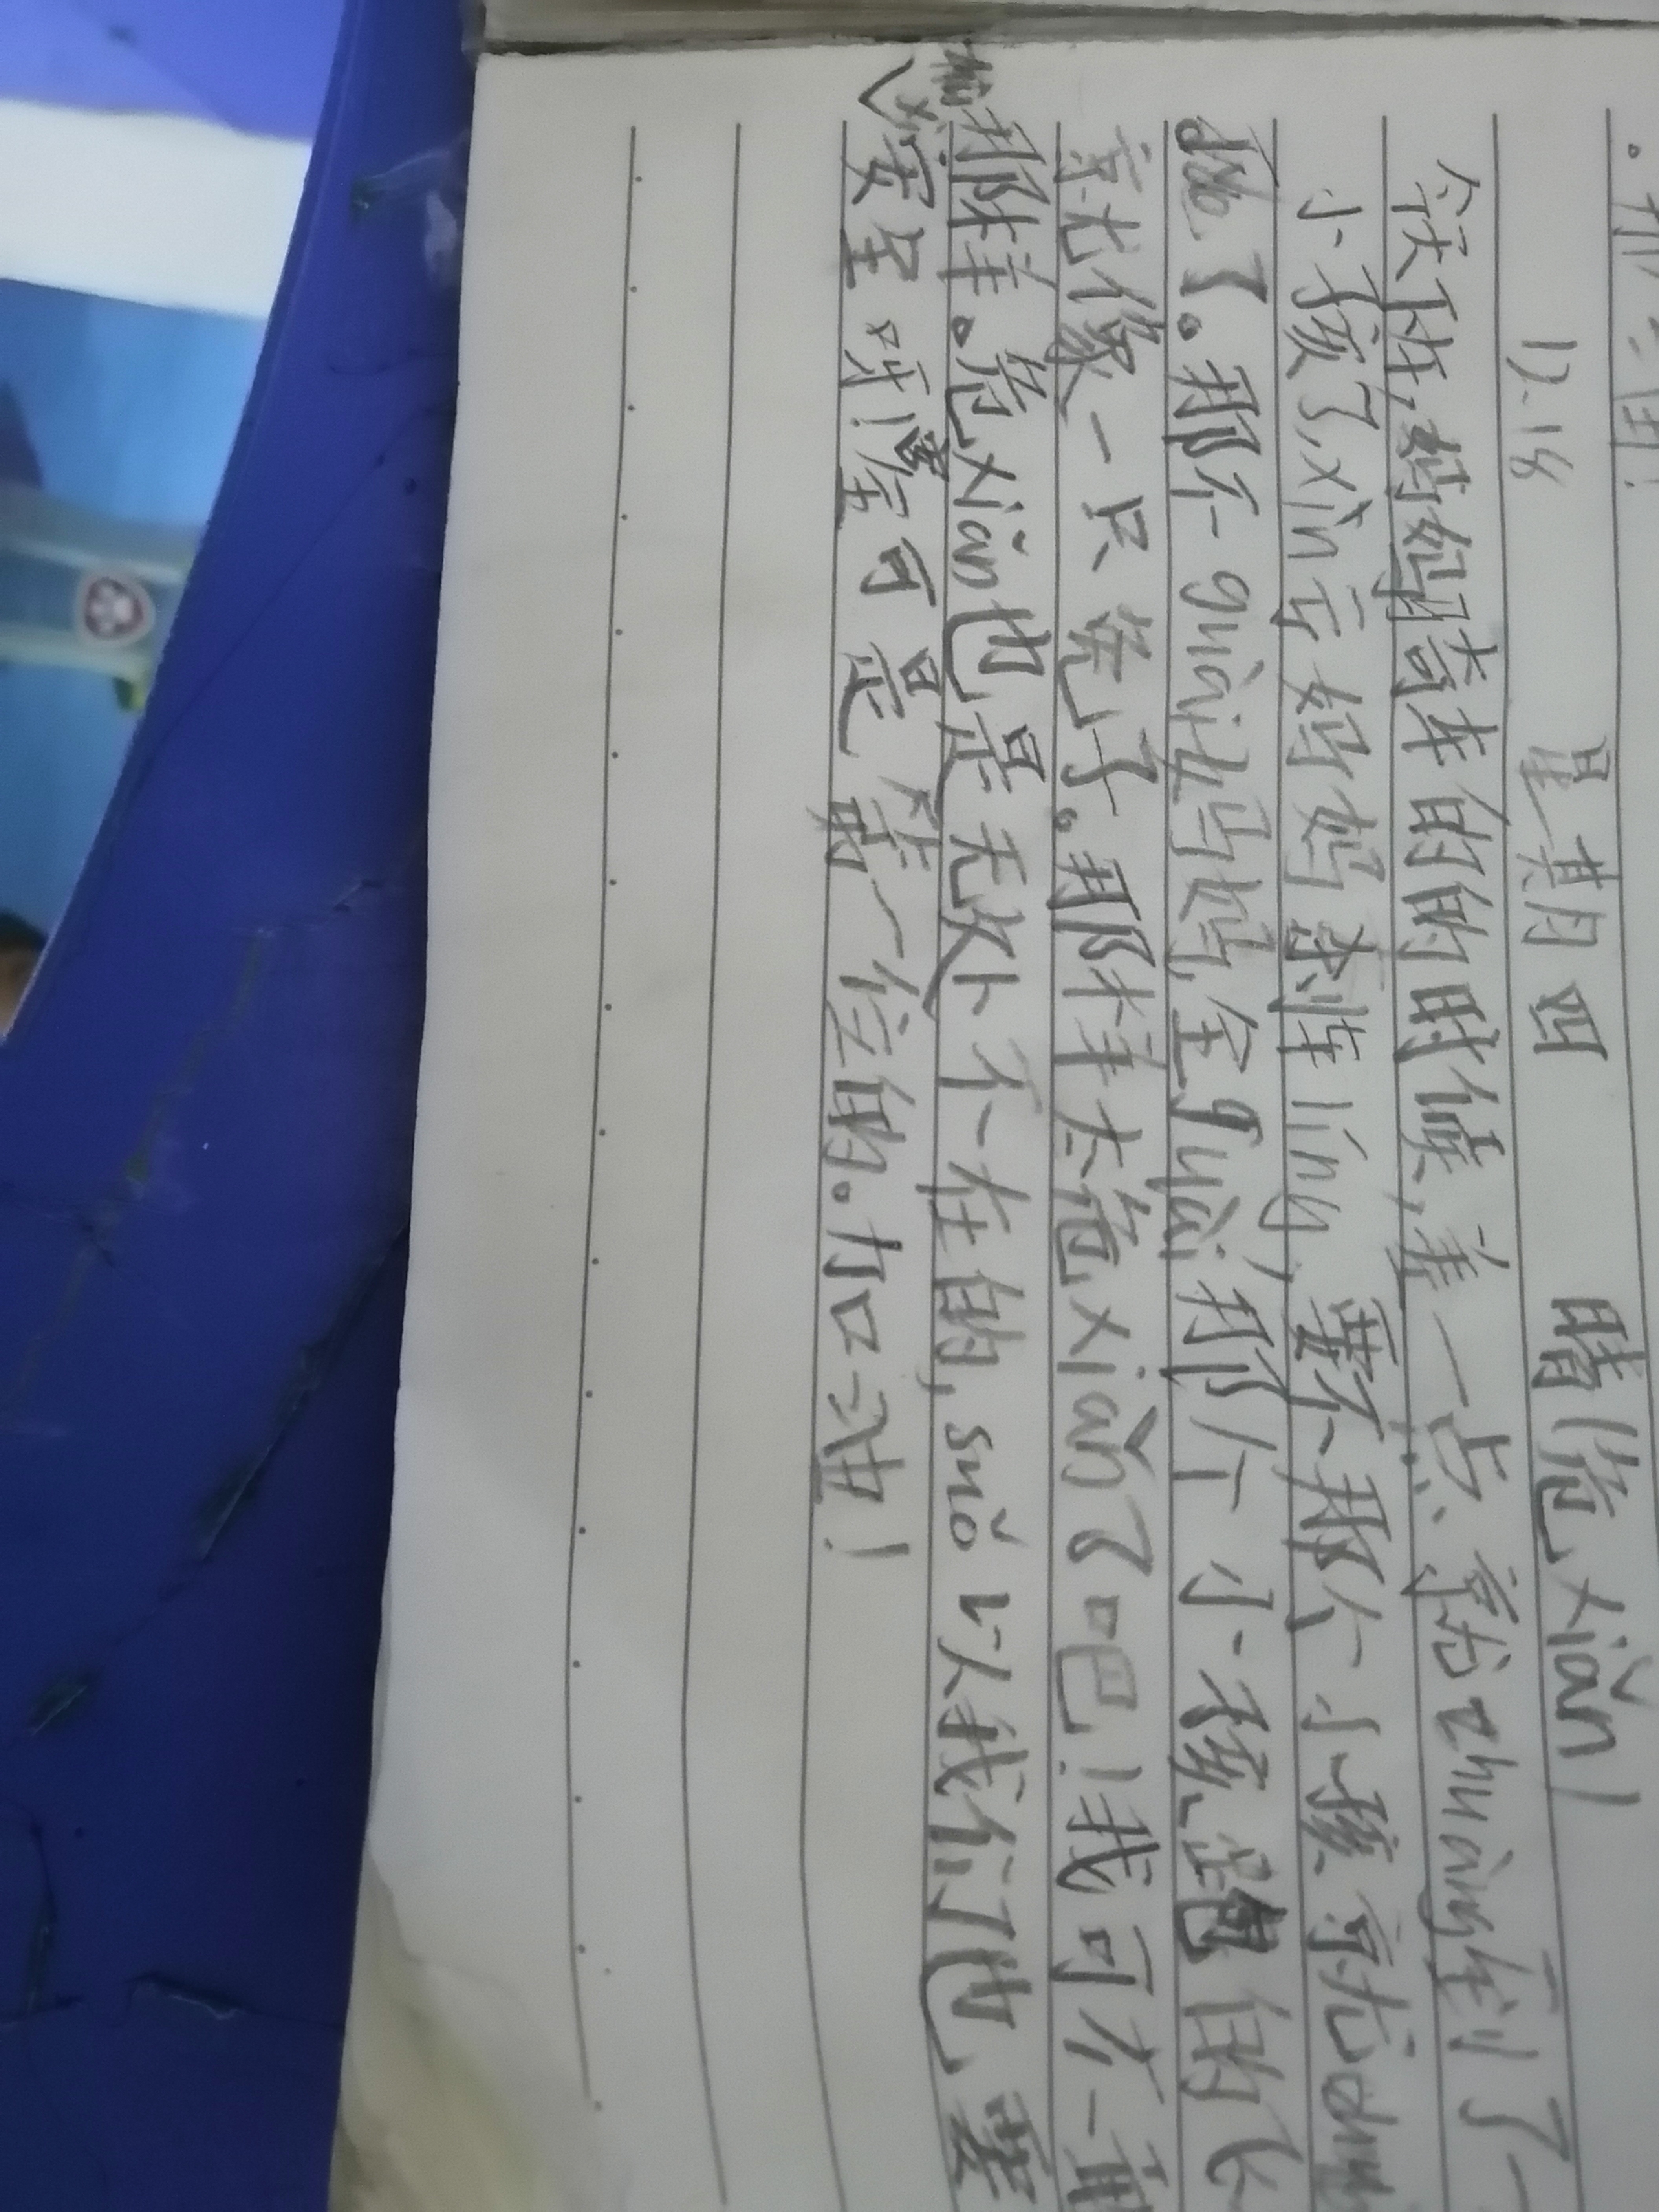 12.18 星期四 晴 危xiǎn!
今天下午,妈妈骑车的的时候,差一点、就zhuàng到了一
小孩了,xìn亏妈妈刹车líng,要不那个小孩就
了。那不guài妈妈,全guài那个小孩,跑的飞
就像一只兔子。那样太危xiǎn了吧!我可不要
那样。危xiǎn也是无处不在的,suǒ以我们也要
安全呀!安全可是第一位的。加口油!